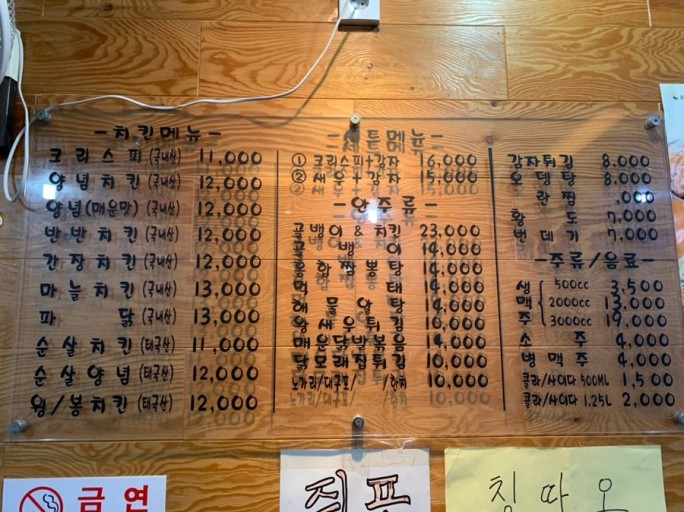 -치킨메뉴-
크리스피(국내산) 11,000
양념치킨(국내산) 12,000
양념(매운맛)(국내산) 12,000
반반치킨(국내산) 12,000
간장치킨(국내산) 12,000
마늘치킨(국내산) 13,000
파 닭(국내산) 13,000
순살치킨(태국산) 11,000
순살양념(태국산) 12,000
윙/봉치킨(태국산) 12,000
-세트메뉴-
① 크리스피+감자 16,000
② 새우+감자 15,000
-안주류-
골뱅이&치킨 23,000
골뱅이 14,000
홍합짬뽕탕 14,000
먹태 14,000
해물알탕 14,000
왕새우튀김 10,000
매운닭발볶음 14,000
닭모래집튀김 10,000
노가리/대구포/ /한치 10,000
감자튀김 8,000
오뎅탕 8,000
란찜 ,000
황도 7,000
번데기 7,000
-주류/음료-
생맥주 500cc 3,500
2000cc 13,000
3000cc 19,000
소주 4,000
병맥주 4,000
콜라/사이다 500ML 1,500
콜라/사이다 1.25L 2,000
금연
쥐포
칭따오